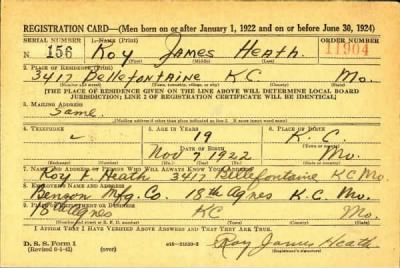 REGISTRATION CARD—(Men born on or after January 1, 1922 and on or before June 30, 1924)
SERIAL NUMBER 1. NAME (Print) ORDER NUMBER
N 156 Roy James Heath 11904
(First) (Middle) (Last)
2. PLACE OF RESIDENCE (Print)
3417 Bellefontaine K C Mo.
(Number and street) (Town, township, village, or city) (County) (State)
[THE PLACE OF RESIDENCE GIVEN ON THE LINE ABOVE WILL DETERMINE LOCAL BOARD
JURISDICTION; LINE 2 OF REGISTRATION CERTIFICATE WILL BE IDENTICAL]
3. MAILING ADDRESS
Same.
[Mailing address if other than place indicated on line 2. If same insert word same]
4. TELEPHONE 5. AGE IN YEARS 6. PLACE OF BIRTH
19 K. C.
DATE OF BIRTH (Town or county)
Nov 7 1922 Mo.
(Exchange) (Number) (Mo.) (Day) (Yr.) (State or country)
7. NAME AND ADDRESS OF PERSON WHO WILL ALWAYS KNOW YOUR ADDRESS
Roy F. Heath 3417 Bellefontaine K C Mo.
8. EMPLOYER'S NAME AND ADDRESS
Benson Mfg. Co. 18th Agnes K. C. Mo.
9. PLACE OF EMPLOYMENT OR BUSINESS
18th Agnes KC Mo.
(Number and street or R. F. D. number) (Town) (County) (State)
I AFFIRM THAT I HAVE VERIFIED ABOVE ANSWERS AND THAT THEY ARE TRUE.
D. S. S. Form 1
(Revised 6-1-42) (over) Roy James Heath